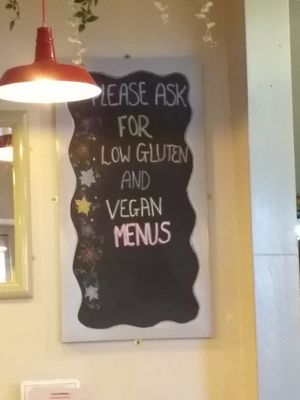 PLEASE ASK
FOR
LOW GLUTEN
AND
VEGAN
MENUS